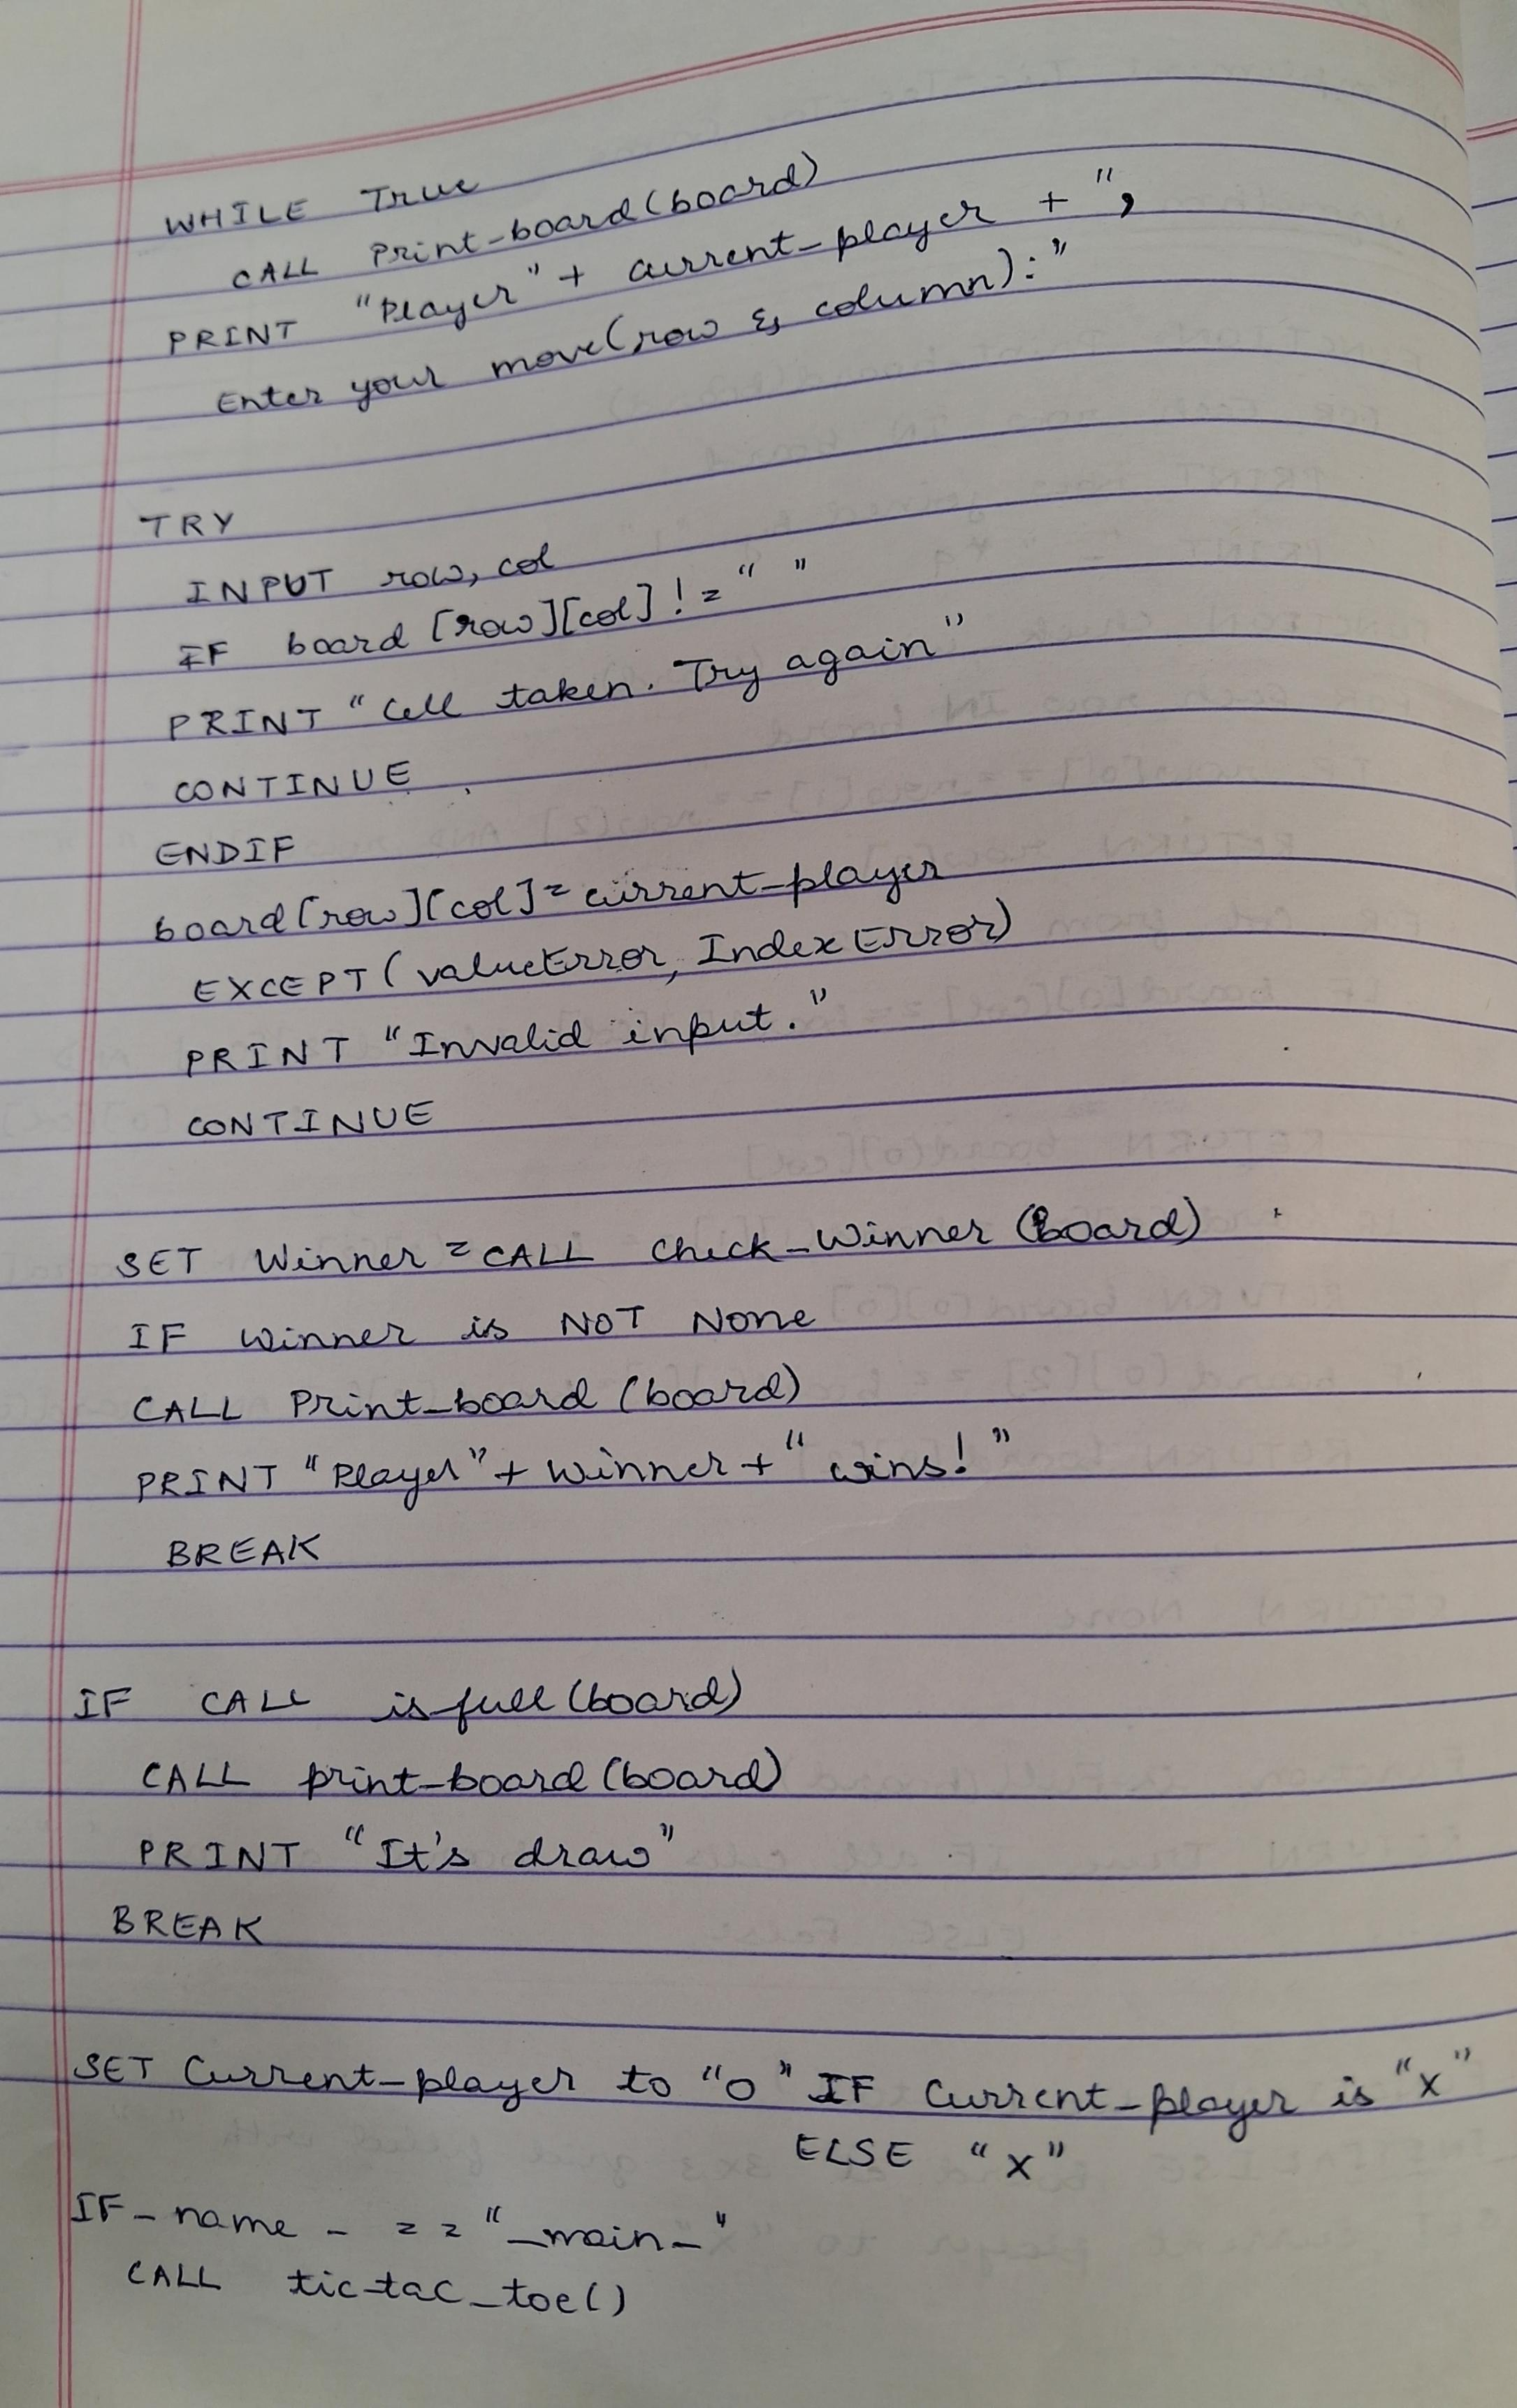 WHILE True
CALL Print-board(board)
PRINT "Player" + current-player + ",
Enter your move(row & column):"
TRY
INPUT row, col
IF board [row][col] != " "
PRINT "Cell taken. Try again"
CONTINUE
ENDIF
board[row][col] = current-player
EXCEPT (valueError, IndexError)
PRINT "Invalid input."
CONTINUE
SET Winner = CALL Check_Winner (Board)
IF winner is NOT None
CALL Print_board (board)
PRINT "Player" + Winner + " wins! "
BREAK
IF CALL is-full (board)
CALL print-board (board)
PRINT "It's draw"
BREAK
SET Current-player to "O" IF Current-player is "X"
ELSE "X"
IF _ name _ == "_main_"
CALL tic-tac_toe()